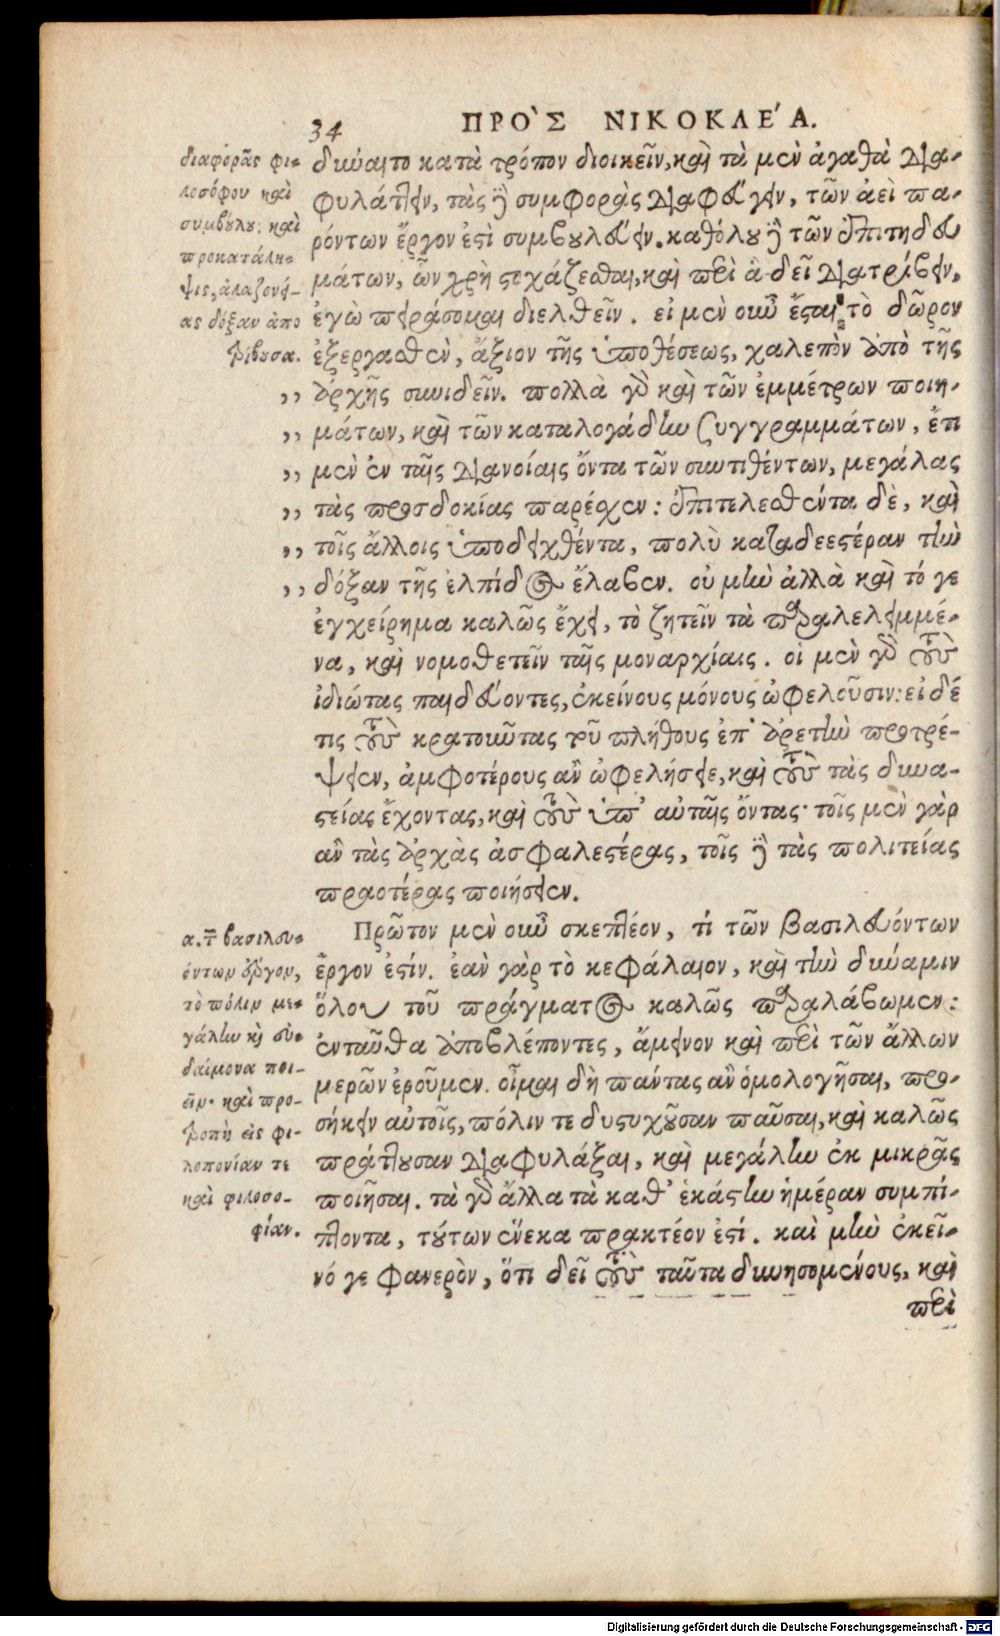 34 ΠΡΟ`Σ ΝΙΚΟΚΛΕ´Α.
δύναιτο κατὰ τρόπον διοικεῖν, καὶ τὰ μὲν ἀγαθὰ δια-
φυλάττειν, τὰς δὲ συμφορὰς διαφεύγειν, τῶν ἀεὶ πα-
ρόντων ἔργον ἐστὶ συμβουλεύειν. καθόλου δὲ τῶν ἐπιτηδευ
μάτων, ὧν χρὴ στοχάζεσθαι, καὶ περὶ ἃ δεῖ διατρίβειν,
ἐγὼ πειράσομαι διελθεῖν. εἰ μὲν οὖν ἔσται τὸ δῶρον
ἐξεργασθὲν, ἄξιον τῆς ὑποθέσεως, χαλεπὸν ἀπὸ τῆς
,, ἀρχῆς συνιδεῖν. πολλὰ γὰρ καὶ τῶν ἐμμέτρων ποιη-
,, μάτων, καὶ τῶν καταλογάδην συγγραμμάτων, ἔτι
,, μὲν ἐν ταῖς διανοίαις ὄντα τῶν συντιθέντων, μεγάλας
,, τὰς προσδοκίας παρέσχεν: ἐπιτελεσθέντα δὲ, καὶ
,, τοῖς ἄλλοις ὑποδειχθέντα, πολὺ καταδεεστέραν τὴν
,, δόξαν τῆς ἐλπίδος ἔλαβεν. οὐ μὴν ἀλλὰ καὶ τό γε
ἐγχείρημα καλῶς ἔχει, τὸ ζητεῖν τὰ παραλελειμμέ-
να, καὶ νομοθετεῖν ταῖς μοναρχίαις. οἱ μὲν γὰρ τοὺς
ἰδιώτας παιδεύοντες, ἐκείνους μόνους ὠφελοῦσιν: εἰ δέ
τις τοὺς κρατοῦντας τοῦ πλήθους ἐπ' ἀρετὴν προτρέ-
ψειεν, ἀμφοτέρους ἂν ὠφελήσειε, καὶ τοὺς τὰς δυνα-
στείας ἔχοντας, καὶ τοὺς ὑπ' αὐταῖς ὄντας· τοῖς μὲν γὰρ
ἂν τὰς ἀρχὰς ἀσφαλεστέρας, τοῖς δὲ τὰς πολιτείας
πραοτέρας ποιήσειεν.
Πρῶτον μὲν οὖν σκεπτέον, τί τῶν βασιλευόντων
ἔργον ἐστίν. ἐὰν γὰρ τὸ κεφάλαιον, καὶ τὴν δύναμιν
ὅλου τοῦ πράγματος καλῶς παραλάβωμεν:
ἐνταῦθα ἀποβλέποντες, ἄμεινον καὶ περὶ τῶν ἄλλων
μερῶν ἐροῦμεν. οἶμαι δὴ πάντας ἂν ὁμολογῆσαι, προ-
σήκειν αὐτοῖς, πόλιν τε δυστυχοῦσαν παῦσαι, καὶ καλῶς
πράττουσαν διαφυλάξαι, καὶ μεγάλην ἐκ μικρᾶς
ποιῆσαι. τὰ γὰρ ἄλλα τὰ καθ' ἑκάστην ἡμέραν συμπί-
πτοντα, τούτων ἕνεκα πρακτέον ἐστί. καὶ μὴν ἐκεῖ-
νό γε φανερὸν, ὅτι δεῖ τοὺς ταῦτα δυνησομένους, καὶ
περὶ
διαφόρᾶς φι-
λοσόφου καὶ
συμβούλου: καὶ
προκατάλη-
ψις, ἀλαζονεί-
ας δόξαν ἀπο
τρίβουσα.
α. τῶν βασιλευ-
όντων ἔργον,
τὸ πόλιν με-
γάλην καὶ εὐ-
δαίμονα ποι-
εῖν· καὶ προ-
τροπὴ εἰς φι-
λοπονίαν τε
καὶ φιλοσο-
φίαν.
Digitalisierung gefördert durch die Deutsche Forschungsgemeinschaft - DFG